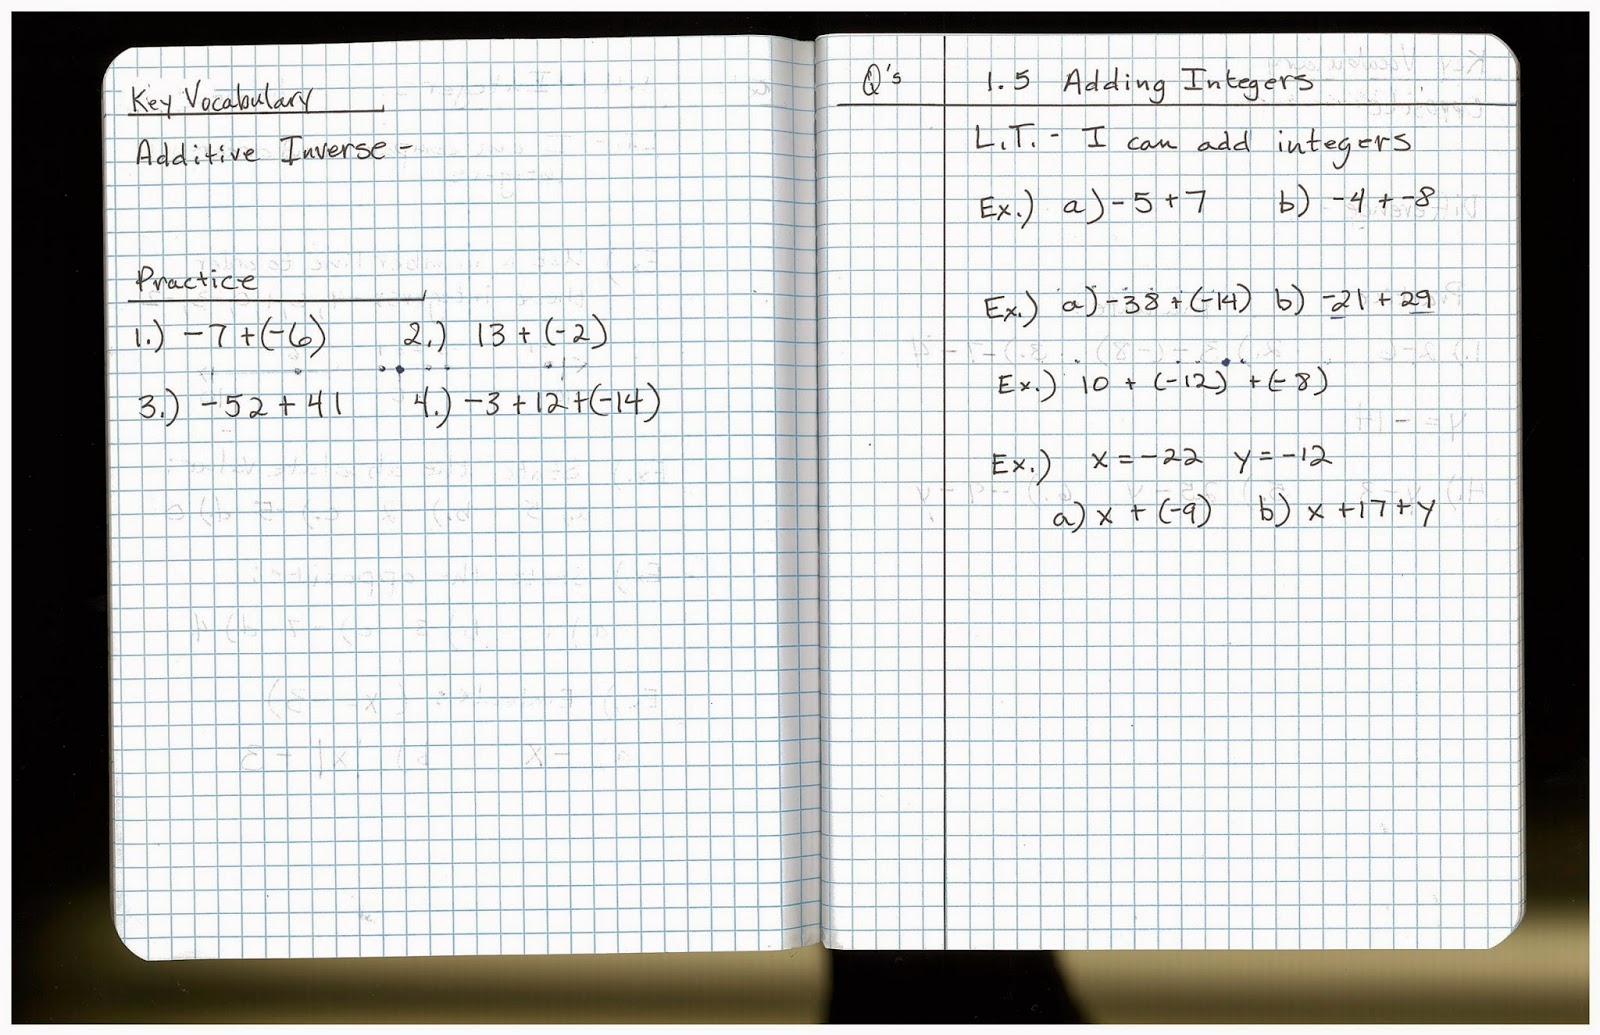 Key Vocabulary
Additive Inverse -
Practice
1.) -7 +(-6) 2.) 13 + (-2)
3.) -52 + 41 4.) -3 +12 +(-14)
Q's 1.5 Adding Integers
L.T. - I can add integers
Ex.) a) -5 + 7 b) -4 + -8
Ex.) a) -38 + (-14) b) -21 + 29
Ex.) 10 + (-12) + (-8)
Ex.) x = -22 y = -12
a) x + (-9) b) x + 17 + y